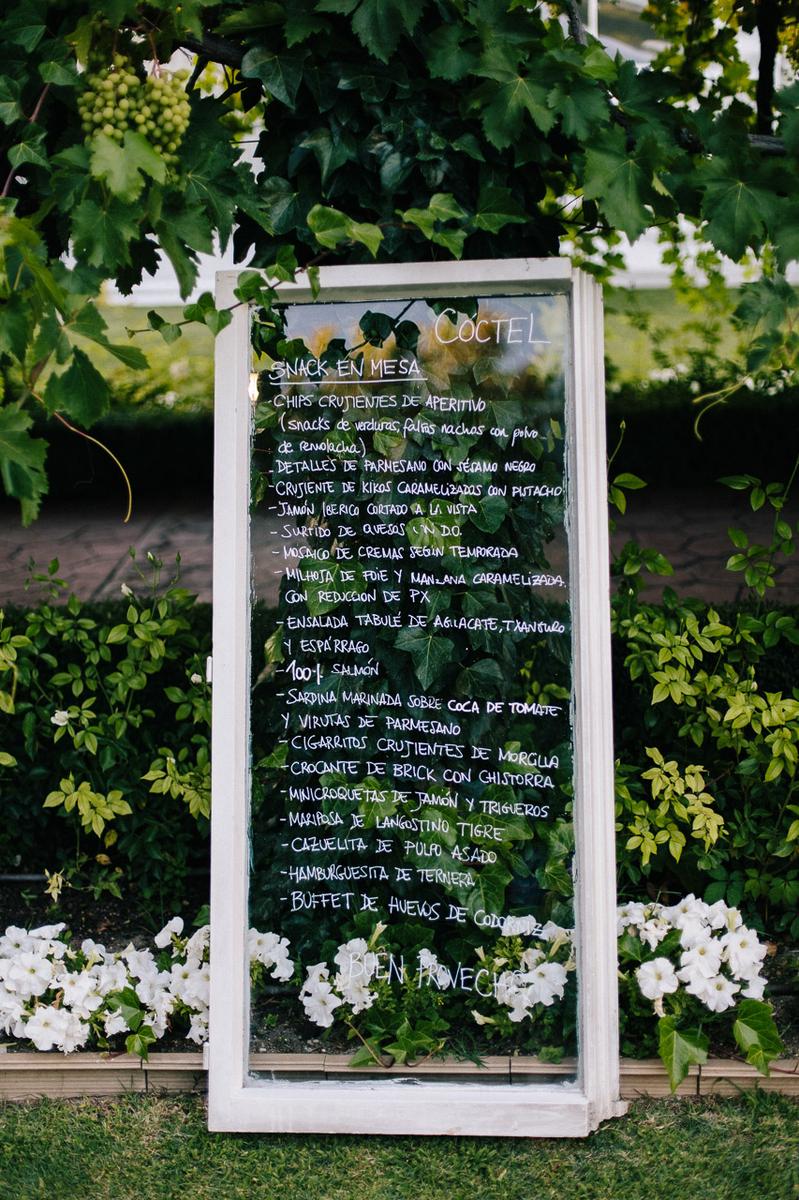 CÓCTEL
SNACK EN MESA
- CHIPS CRUJIENTES DE APERITIVO
(snacks de verduras, falsos nachos con polvo
de remolacha)
- DETALLES DE PARMESANO CON SÉSAMO NEGRO
- CRUJIENTE DE KIKOS CARAMELIZADOS CON PISTACHO
- JAMÓN IBERICO CORTADO A LA VISTA
- SURTIDO DE QUESOS D.O.
- MOSAICO DE CREMAS SEGÚN TEMPORADA
- MILHOJA DE FOIE Y MANZANA CARAMELIZADA
CON REDUCCION DE PX
- ENSALADA TABULÉ DE AGUACATE, TXANGURO
Y ESPÁRRAGO
- 100% SALMÓN
- SARDINA MARINADA SOBRE COCA DE TOMATE
Y VIRUTAS DE PARMESANO
- CIGARRITOS CRUJIENTES DE MORCILLA
- CROCANTE DE BRICK CON CHISTORRA
- MINICROQUETAS DE JAMÓN Y TRIGUEROS
- MARIPOSA DE LANGOSTINO TIGRE
- CAZUELITA DE PULPO ASADO
- HAMBURGUESITA DE TERNERA
- BUFFET DE HUEVOS DE CODORNIZ
BUEN PROVECHO